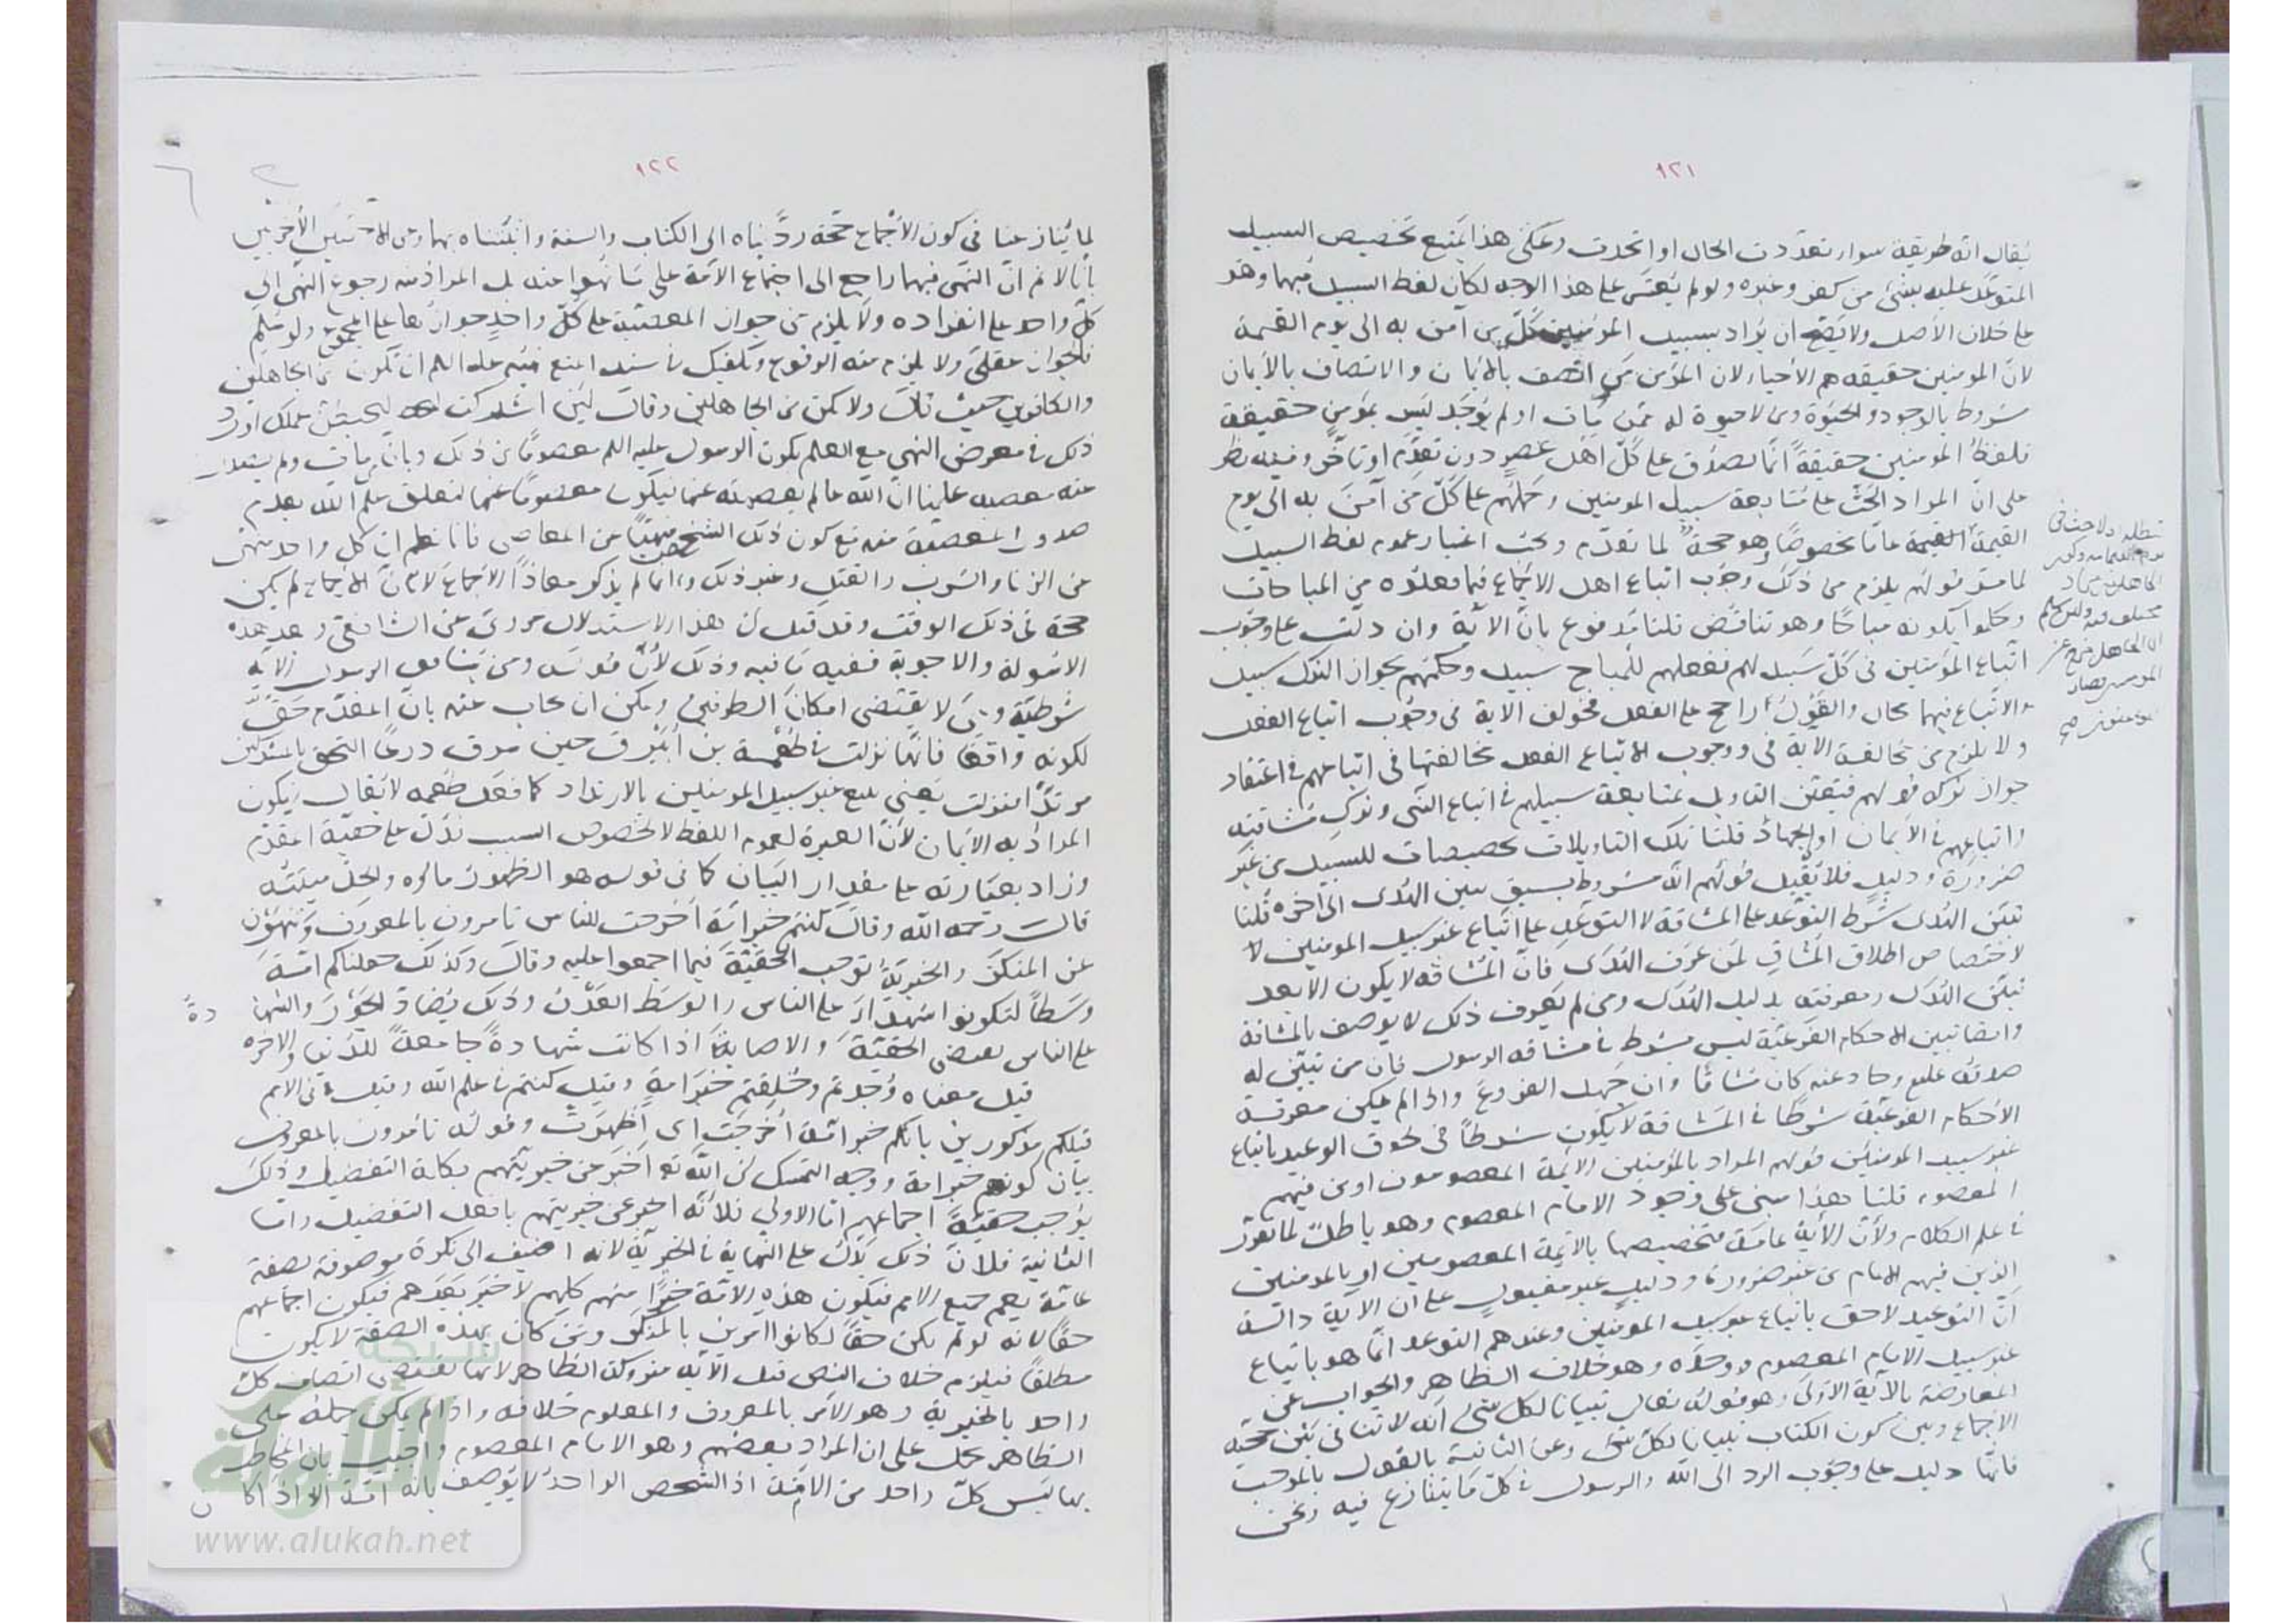 ١٢١
يقال انه طريقة سواء تعددت الحال او اتحدت وعلى هذا يمتنع تخصيص السبيل
المتوعد عليه بشئ من كفر وغيره ولو لم يُعتبر على هذا الوجه لكان لفظ السبيل مبهما وهو
على خلاف الأصل ولا يصح ان يُراد بسبيل المؤمنين كلُّ من آمن به الى يوم القيمة
لانّ المؤمنين حقيقه هم الأحياء لان المؤمن من اتصف بالأيمان والاتصاف بالأيمان
مشروط بالوجود والحيوة ومن لا حيوة له ممن مات او لم يوجد ليس بمؤمن حقيقة
فلفظ المؤمنين حقيقةً انما يصدق على كلّ اهل عصر دون من تقدّم او تأخر وفيه نظر
على انّ المراد الحثّ على متابعة سبيل المؤمنين وحملهم على كلّ من آمن به الى يوم
القيمة عامًا مخصوصًا وهو حجة لما تقدم ويجب اعتبار عموم لفظ السبيل
لما مرّ قولهم يلزم من ذلك وجوب اتباع اهل الاجماع فيما فعلوه من المباحات
وحكموا بكونه مباحًا وهو تناقض قلنا مدفوع بانّ الآية وان دلّت على وجوب
اتباع المؤمنين في كلّ سبيل لهم ففعلهم للمباح سبيل وحكمهم بجواز الترك سبيل
والاتباع فيهما محال والقول راجح على الفعل فخولف الآية في وجوب اتباع الفعل
ولا يلزم من مخالفة الآية في وجوب الاتباع الفعل مخالفتها في اتباعهم في اعتقاد
جواز تركه قولهم فتعيّن التأويل بمتابعة سبيلهم في اتباع النبي وترك مشاقته
واتباعهم في الأيمان او الجهاد قلنا تلك التأويلات تخصيصات للسبيل من غير
ضرورة ودليل فلا تُقبل قولهم انّه مشروط بسبق تبيّن الهُدى الى آخره قُلنا
تبيّن الهُدى شرط التوعّد على المشاقة لا التوعّد على اتّباع غير سبيل المؤمنين لا
لاختصاص اطلاق المُشاقِ لمن عَرف الهُدى فانّ المُشاقّه لا يكون الا بعد
تبيّن الهُدى ومعرفته بدليل الهُدى ومن لم يعرف ذلك لا يوصف بالمشاقة
وايضا تبيين الاحكام الفرعيّة ليس بشرط في مشاقه الرسول فان من تبيّن له
صدقه عليه وحاد عنه كان مُشاقًا وان جَهِل الفروعَ واذا لم يكن معرفة
الأحكام الفرعيّة شرطًا في المشاقة لا يكون شرطًا في لحوق الوعيد باتباع
غير سبيل المؤمنين قولهم المراد بالمؤمنين الأئمة المعصومون او من فيهم
المعصوم قلنا هذا مبنى على وجود الامام المعصوم وهو باطلٌ لما تقرّر
في علم الكلام ولأنّ الأية عامة فتخصيصها بالأئمة المعصومين او بالمؤمنين
الذين فيهم الامام من غير ضرورة ودليل غير مقبول على ان الآية دالة
انّ التوعيد لاحق باتباع غير سبيل المؤمنين وعندهم التوعد انّما هو باتباع
غير سبيل الامام المعصوم وحدَه وهو خلاف الظاهر والجواب عن
المعارضة بالآية الأولى وهو قوله تعالى تبيانا لكل شئ انّه لا تنافى بين حجيّة
الاجماع وبين كون الكتاب تبيانا لكلّ شئ وعن الثانية بالقول بالموجب
فانّها دليل على وجوب الرد الى الله والرسول في كلّ ما يتنازع فيه ونحن
١٢٢
لما تُنازعنا في كون الأجماع حجة ردَّدناه الى الكتاب والسنة واثبتناه بهما وعن الآيتين الأخريين
بأنّا لا نم انّ النهى فيهما راجع الى اجتماع الأمة على ما نهوا عنه بل المراد منه رجوع النهى الى
كلّ واحد على انفراده ولا يلزم من جواز المعصية على كلّ واحدٍ جوازُها على المجموع ولو سُلّم
فالجواز عقلى ولا يلزم منه الوقوع
والكافرين حيث قال ولا تكن من الجاهلين وقال لئن اشركت ليحبطنّ عملك اورد
ذلك في معرض النهى مع العلم بكون الرسول عليه السلم معصومًا من ذلك وبانّ من مات ولم يصدر
عنه معصية علمنا انّ الله عالم بعصمته عنها فيكون معصومًا عنها لتعلق علم الله بعدم
صدور المعصية منه مع كون ذلك الشخص منهيًّا عن المعاصى فانا نعلم ان كل واحد منهى
عن الزنا والشرب والقتل وغير ذلك وانّما لم يذكر معاذًا الأجماعَ لأنّ الأجماع لم يكن
حجة في ذلك الوقت وقد قيل انّ هذا الاستدلال مروىٌّ عن الشافعى وهذه
الاسولة والاجوبة وذلك لأنّ قوله ومن يشاقق الرسول الآية
شرطيّة وهى لا يقتضى امكانَ الطرفين ويمكن ان يجاب عنه بانّ المقدّم حقٌّ
لكونه واقعًا فانّها نزلت في طُعْمة بن اُبَيْرق حين سرق درعًا التحق بالمشركين
مرتدًّا فنزلت يعنى يتبع غير سبيل المؤمنين بالارتداد كما فعل طعمه لا يقال فيكون
المراد به الأيمان لأنّ العبرة لعموم اللفظ لا لخصوص السبب فدلّ على حقيّة المقدم
وزاد بعبارته على مقدار البيان كما في قوله هو الطهورُ ماؤه والحلّ ميتتُه
قال رحمه الله وقال كنتم خير امّة أخرجت للناس تأمرون بالمعروف وتنهون
عن المنكر والخيريّة توجب الحقيّة فيما اجمعوا عليه وقال وكذلك جعلناكم امّةً
وسَطًا لتكونوا شهداء على الناس والوسط العَدْل وذلك يضادّ الجَوْرَ والشهادةُ
على الناس يقتضى الحقيّةَ والاصابةَ اذا كانت شهادةً جامعةً للدنيا والاخرة
قيل معناه وُجدتم وخُلقتم خيرَ امةٍ وقيل كنتم في علم الله وقيل في الامم
قبلكم مذكورين بانكم خير امّة أُخرجت اى أُظهرت وقوله تأمرون بالمعروف
بيان كونهم خير امة ووجه التمسك انّ الله تعالى اخبر عن خيريّتهم بكلمة التفضيل وذلك
يوجب حقيّة اجماعهم امّا الاولى فلأنّه اخبر عن خيريتهم بافعل التفضيل وامّا
الثانية فلانّ ذلك يدلّ على النهاية في الخيريّة لانه اضيف الى نكرة موصوفة بصفة
عامّة يعم جميع الامم فيكون هذه الامّة خيرًا منهم كلهم لا خير بعدهم فيكون اجماعهم
حقًّا لأنه لو لم يكن حقًّا لكانوا آمرين بالمنكر ومَن كان بهذه الصفة لا يكون
مطلقًا فيلزم خلاف النص قيل الآية متروكة الظاهر لأنها تقتضى اتصاف كلّ
واحد بالخيرية وهو الأمر بالمعروف والمعلوم خلافه واذا لم يكن حمله على
الظاهر يحمل على ان المراد بعضهم وهو الامام المعصوم واجيب بان المخاطب
بها ليس كلّ واحد من الامّة اذ الشخص الواحد لا يوصف بانّه امّة الا اذا كان
شبكة
الألوكة
www.alukah.net